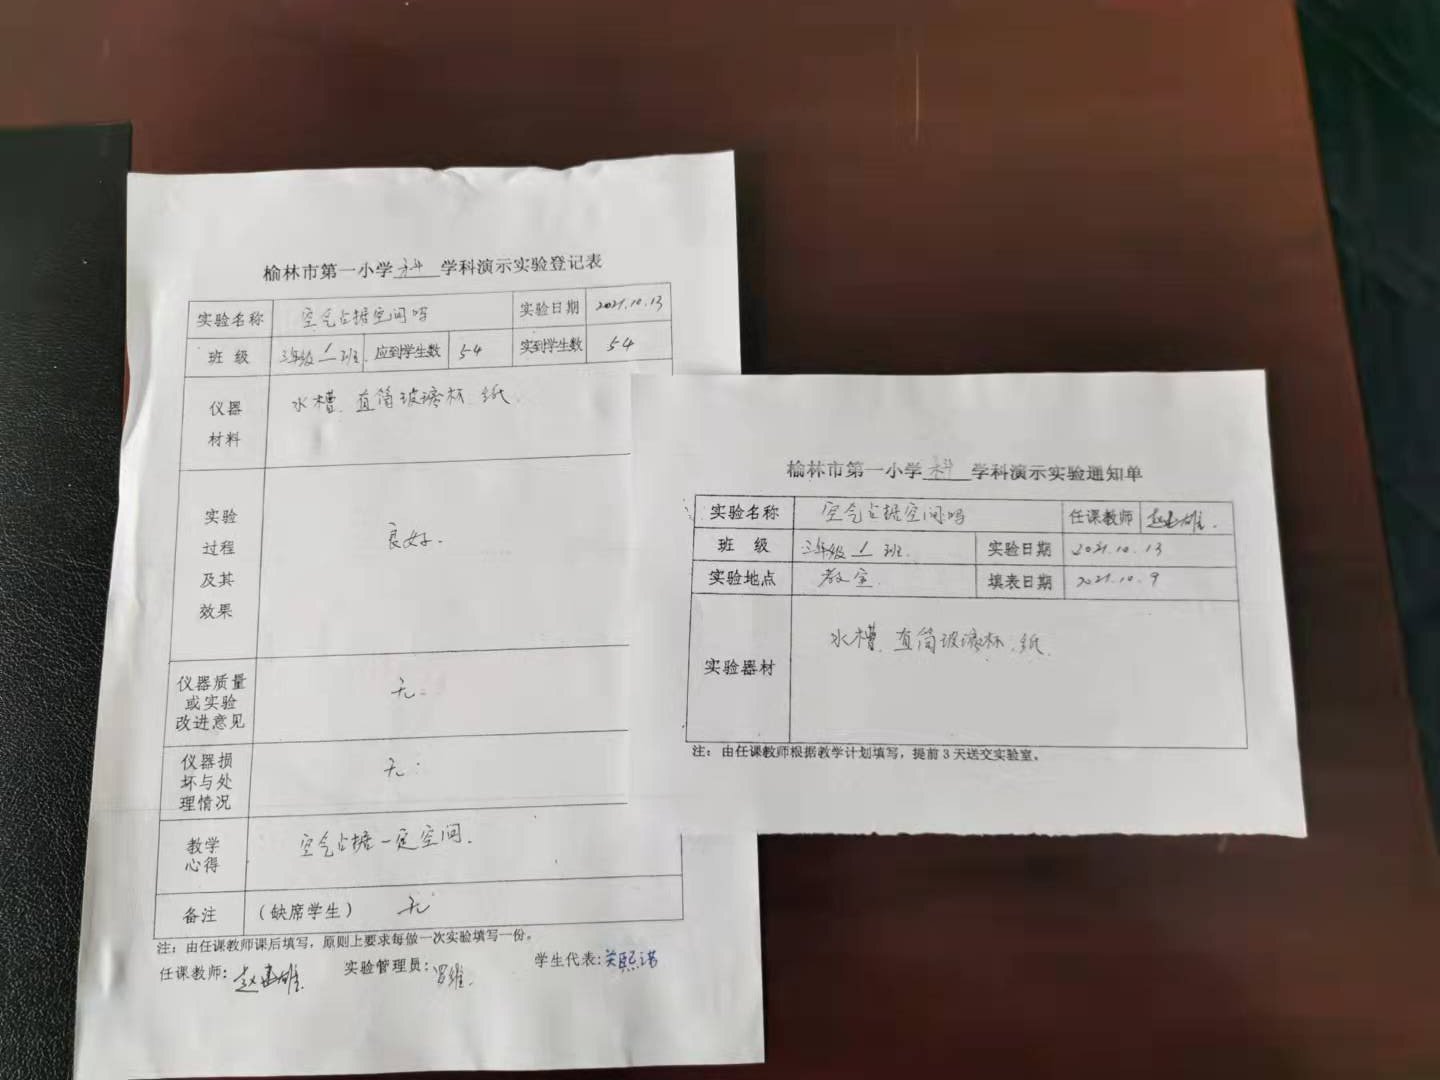 榆林市第一小学 科 学科演示实验登记表
实验名称 空气占据空间吗 实验日期 2021.10.13
班 级 三年级 1 班. 应到学生数 54 实到学生数 54
仪器
材料
水槽、直筒玻璃杯、纸.
实验
过程
及其
效果
良好.
仪器质量
或实验
改进意见
无.
仪器损
坏与处
理情况
无.
教学
心得
空气占据一定空间.
备注 （缺席学生） 无
注：由任课教师课后填写，原则上要求每做一次实验填写一份。
任课教师: 赵雄 实验管理员: 罗维. 学生代表: 关熙诺
榆林市第一小学 科 学科演示实验通知单
实验名称 空气占据空间吗 任课教师
班 级 三年级 1 班. 实验日期 2021.10.13
实验地点 教室. 填表日期 2021.10.9
实验器材 水槽、直筒玻璃杯、纸.
注：由任课教师根据教学计划填写，提前 3 天送交实验室。